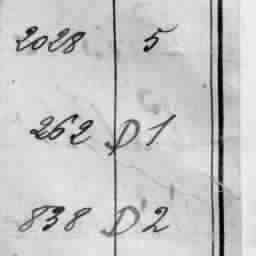 2028 5
262 D 1
838 D 2